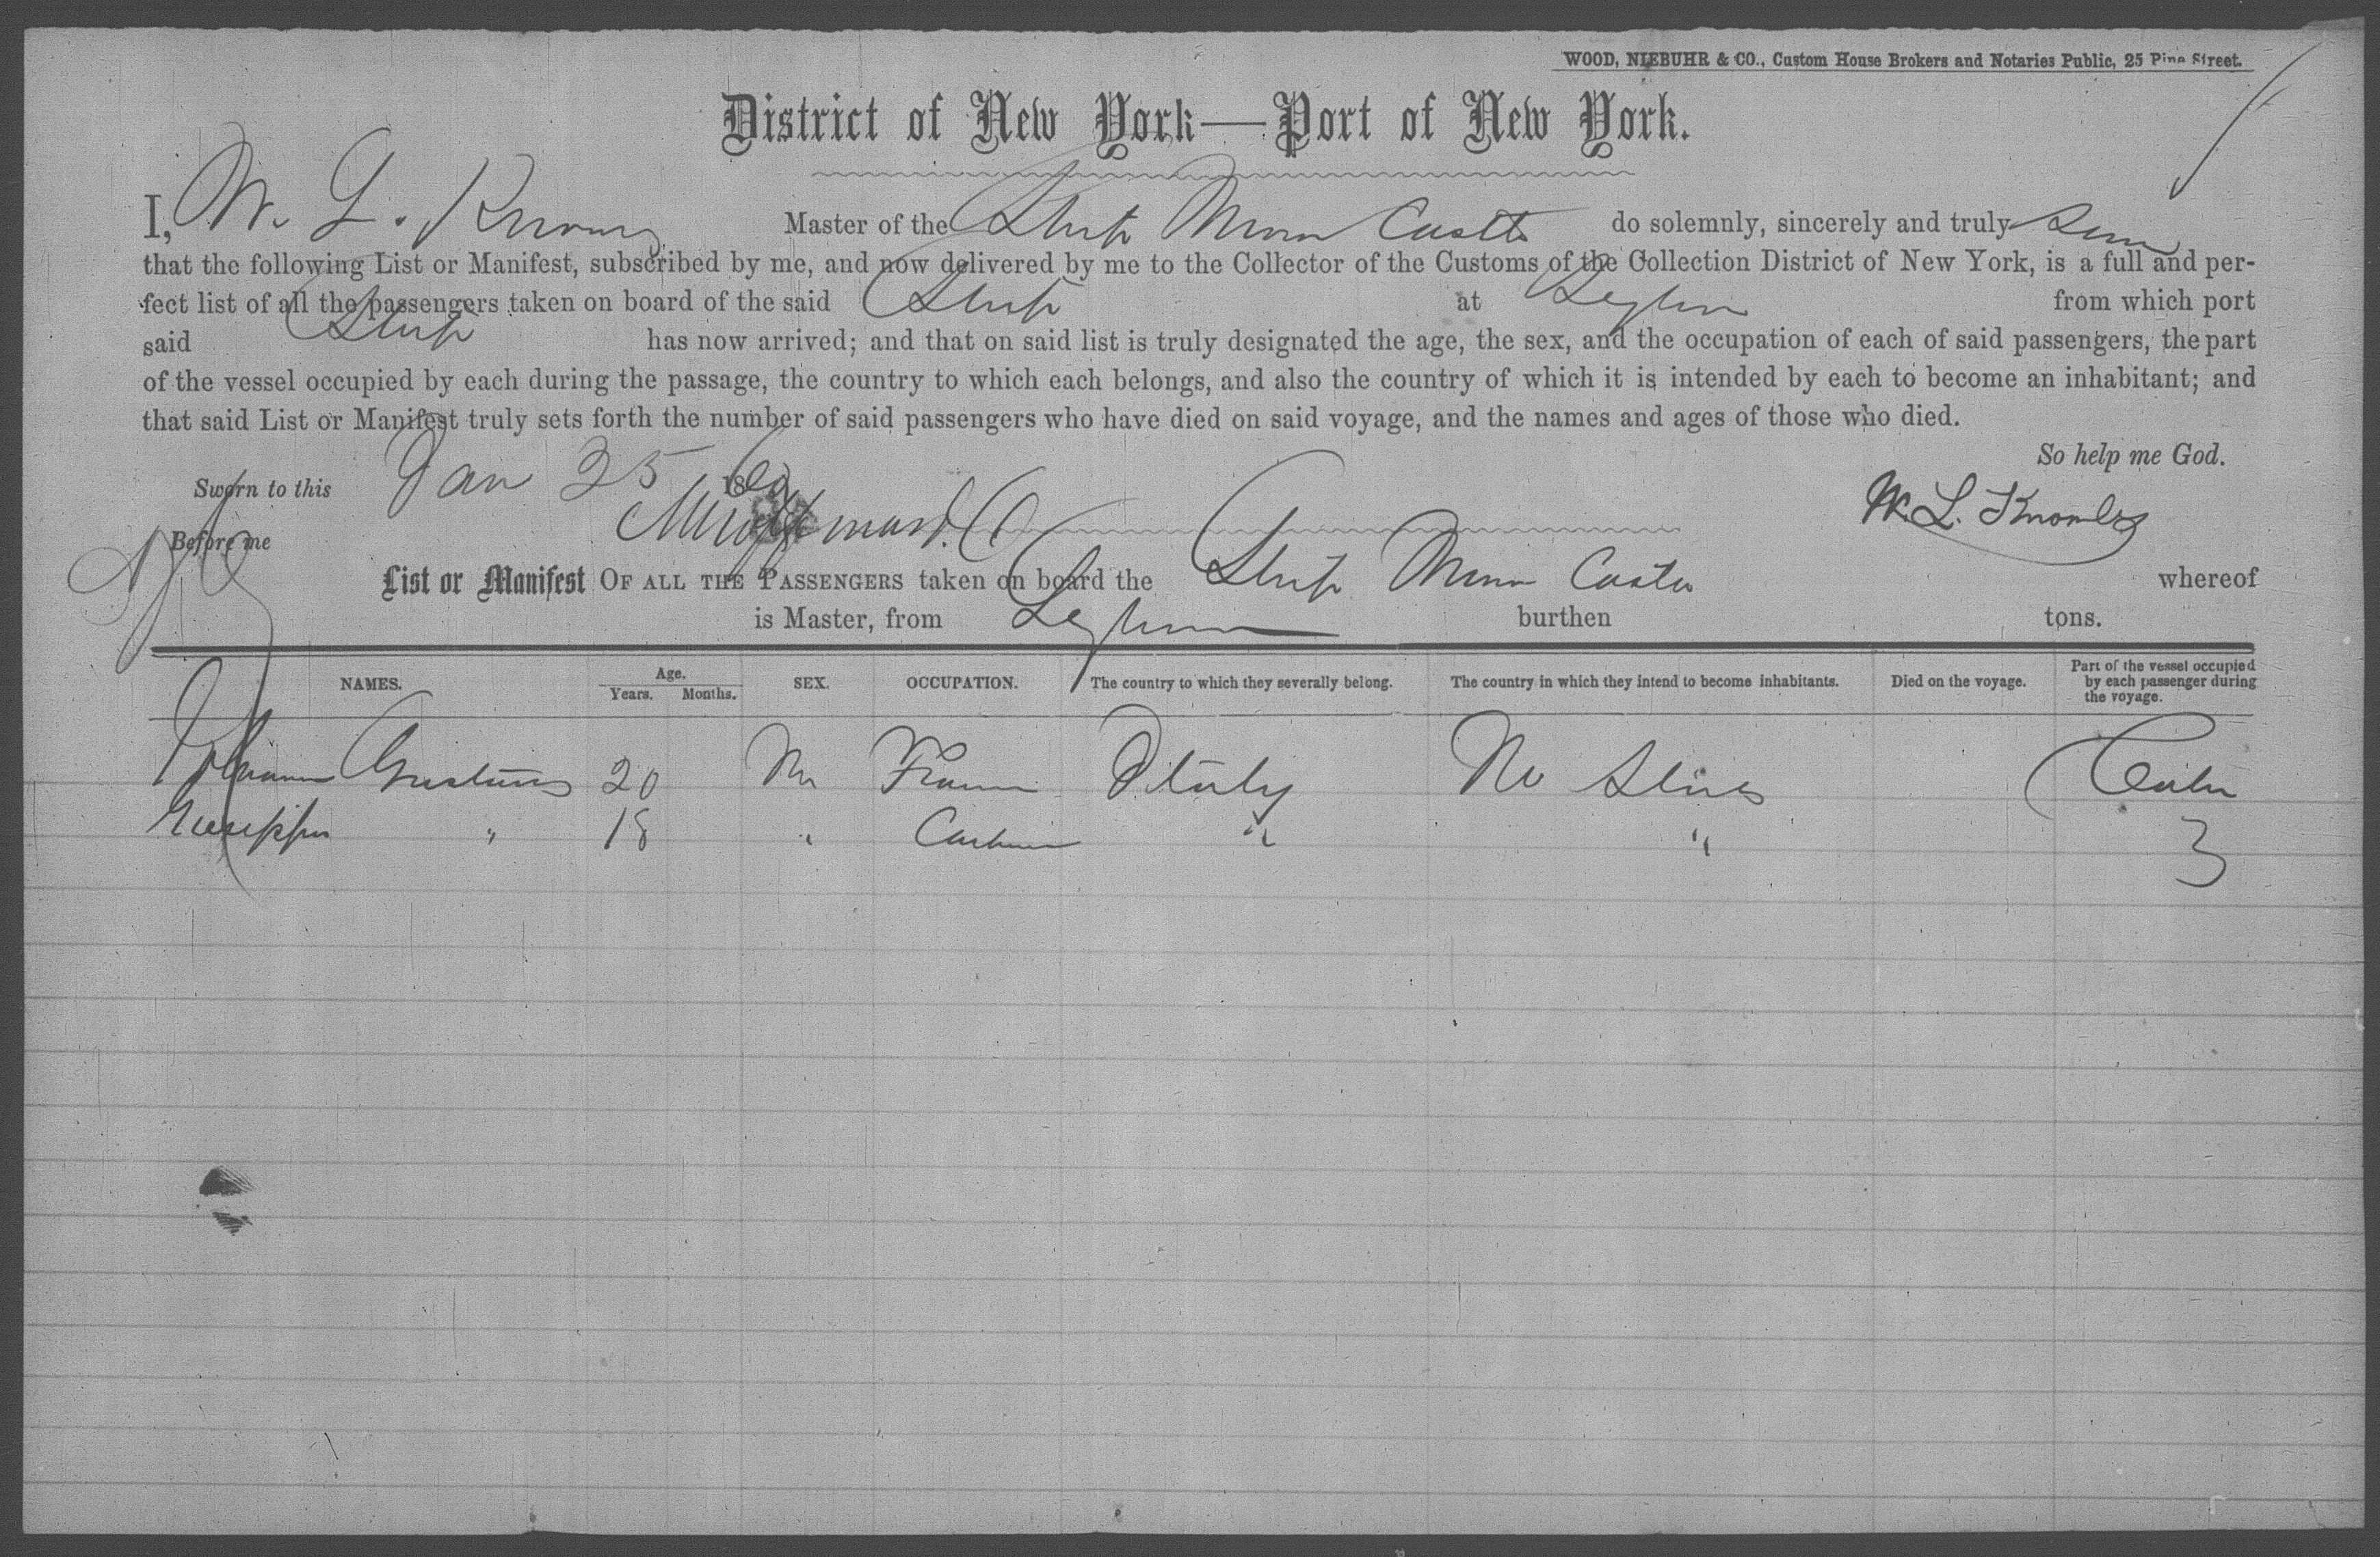 WOOD, NIEBUHR & CO., Custom House Brokers and Notaries Public, 25 Pine Street.
District of New York—Port of New York.
I, W. L. Master of the Ship do solemnly, sincerely and truly
that the following List or Manifest, subscribed by me, and now delivered by me to the Collector of the Customs of the Collection District of New York, is a full and per-
fect list of all the passengers taken on board of the said Ship at Leghorn from which port
said Ship has now arrived; and that on said list is truly designated the age, the sex, and the occupation of each of said passengers, the part
of the vessel occupied by each during the passage, the country to which each belongs, and also the country of which it is intended by each to become an inhabitant; and
that said List or Manifest truly sets forth the number of said passengers who have died on said voyage, and the names and ages of those who died.
So help me God.
Sworn to this Jan 25 18
W. L. Knowles
Before me
List or Manifest OF ALL THE PASSENGERS taken on board the Ship whereof
is Master, from Leghorn burthen tons.
NAMES. Age. Years. Months. SEX. OCCUPATION. The country to which they severally belong. The country in which they intend to become inhabitants. Died on the voyage. Part of the vessel occupied by each passenger during the voyage.
20 M Italy U States Cabin
Giuseppe " 18 " " "